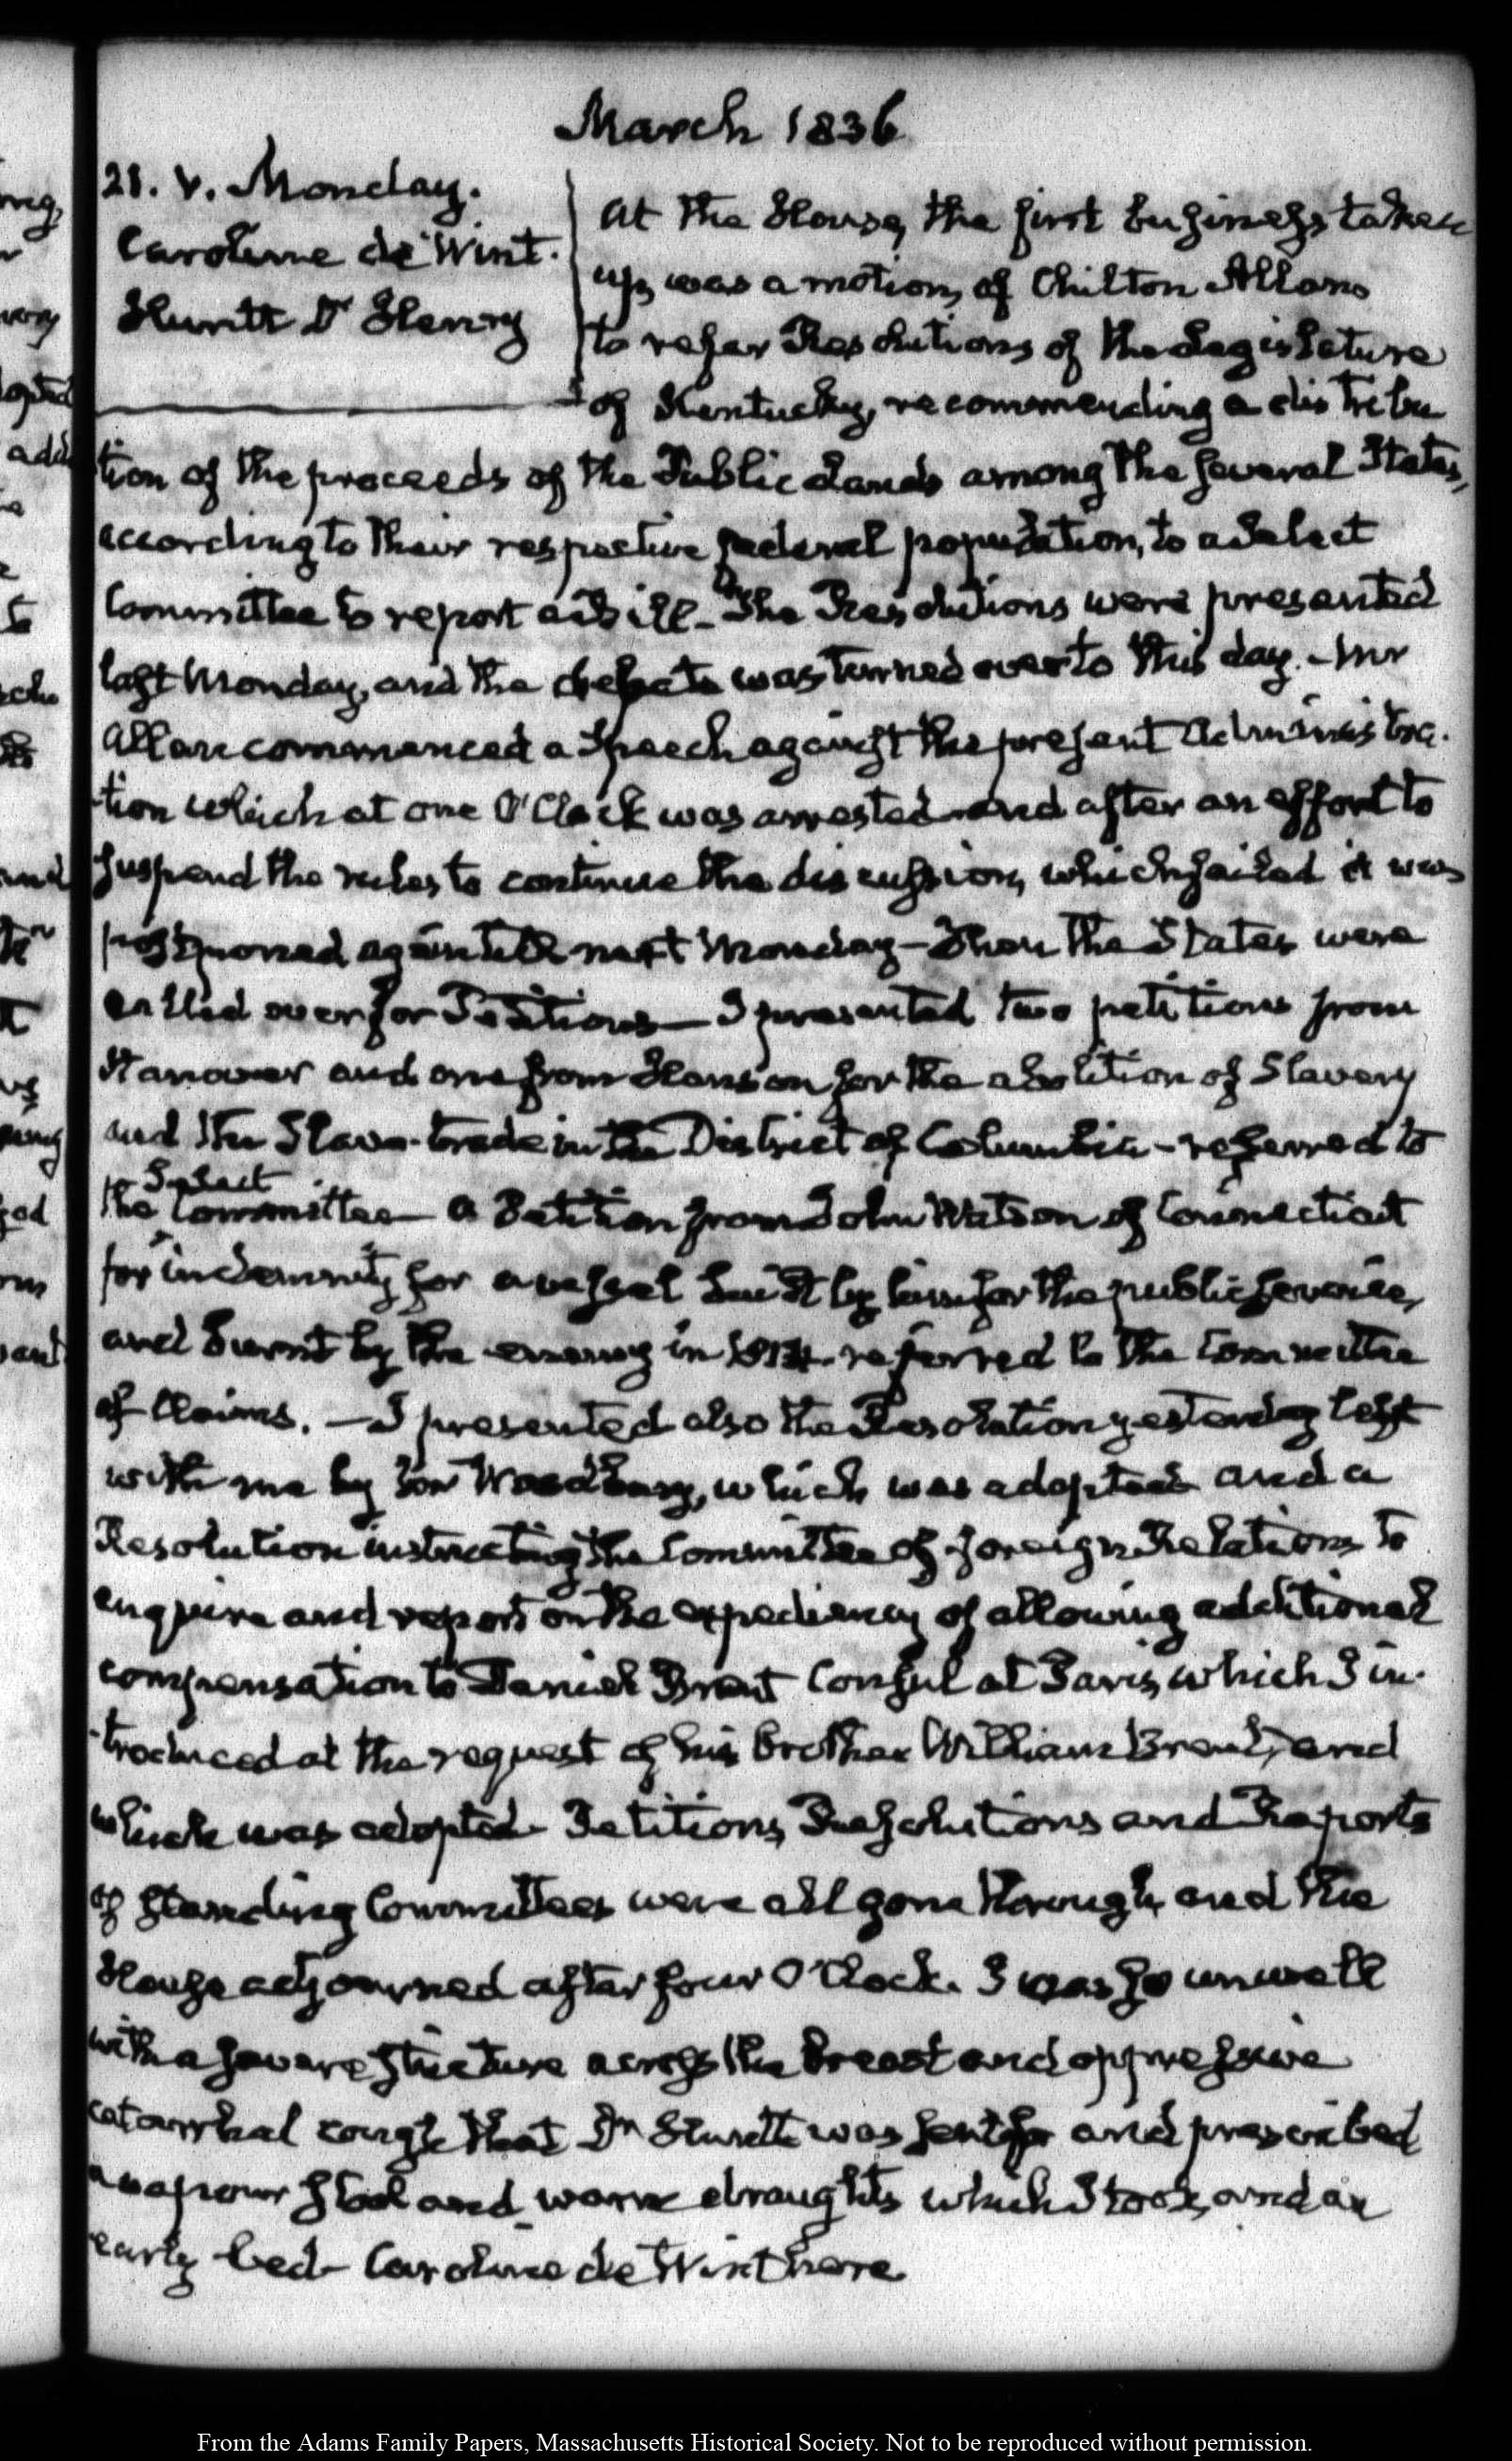 March 1836
21. V. Monday.
Caroline de Wint.
Huntt Dr Henry
At the House, the first business taken
up, was a motion of Chilton Allan,
to refer Resolutions of the Legislature
of Kentucky, recommending a distribu
tion of the proceeds of the Public Lands among the several States,
according to their respective federal population, to a Select
Committee to report a Bill— The Resolutions were presented
last Monday, and the debate was turned over to this day.— Mr
Allan commenced a Speech against the present Administra-
tion which at one O'Clock was arrested and after an effort to
suspend the rules to continue the discussion, which failed it was
postponed again till next Monday— Then the States were
called over for Petitions— I presented two petitions from
Hanover and one from Hanson for the abolition of Slavery
and the Slave-trade in the District of Columbia— referred to
the Select Committee— a Petition from John Watson of Connecticut
for indemnity for a vessel built by him for the public service,
and burnt by the enemy in 1814. referred to the Committee
of Claims.— I presented also the Resolution yesterday left
with me by Woodbury, which was adopted and a
Resolution instructing the Committee of foreign Relations, to
enquire and report on the expediency of allowing additional
compensation to Daniel Brent Consul at Paris, which I in-
troduced at the request of his brother William Brent, and
which was adopted— Petitions, Resolutions and Reports
of standing Committees were all gone through, and the
House adjourned after four O'Clock. I was so unwell
with a severe stricture across the breast and oppressive
catarrhal cough that Dr Huntt was sent for and prescribed
a vapour and warm draughts which I took, and an
early bed— Caroline de Wint here
From the Adams Family Papers, Massachusetts Historical Society. Not to be reproduced without permission.